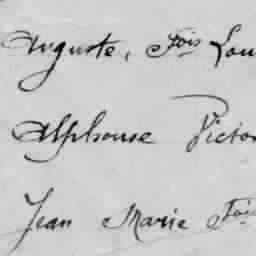 Auguste, Fois Lou
Alphonse Victor
Jean Marie Fois